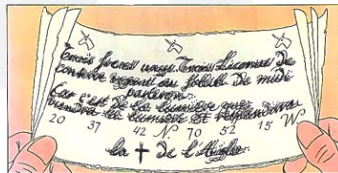 Trois freres unys. Trois Licornes de
conserve vogant au soleil de midi
parleront.
Car c'est de la lumière que
viendra la lumière. Et resplendira
20 37 42 N. 70 52 15 W.
la † de l'Aigle